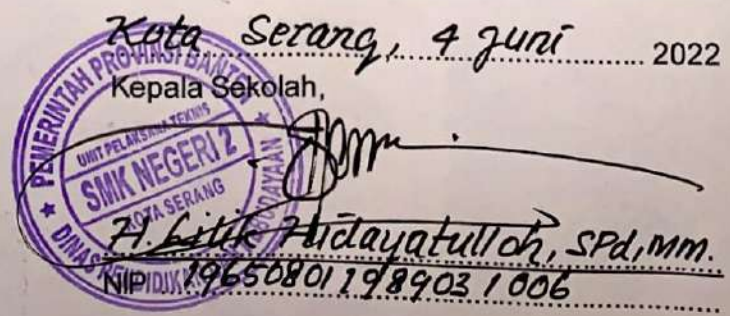 Kota Serang, 4 Juni 2022
Kepala Sekolah,
PEMERINTAH PROVINSI BANTEN
UNIT PELAKSANA TEKNIS
SMK NEGERI 2
KOTA SERANG
DINAS PENDIDIKAN KEBUDAYAAN
H. Lilik Hidayatulloh, SPd, MM.
NIP 19650801 198903 1 006